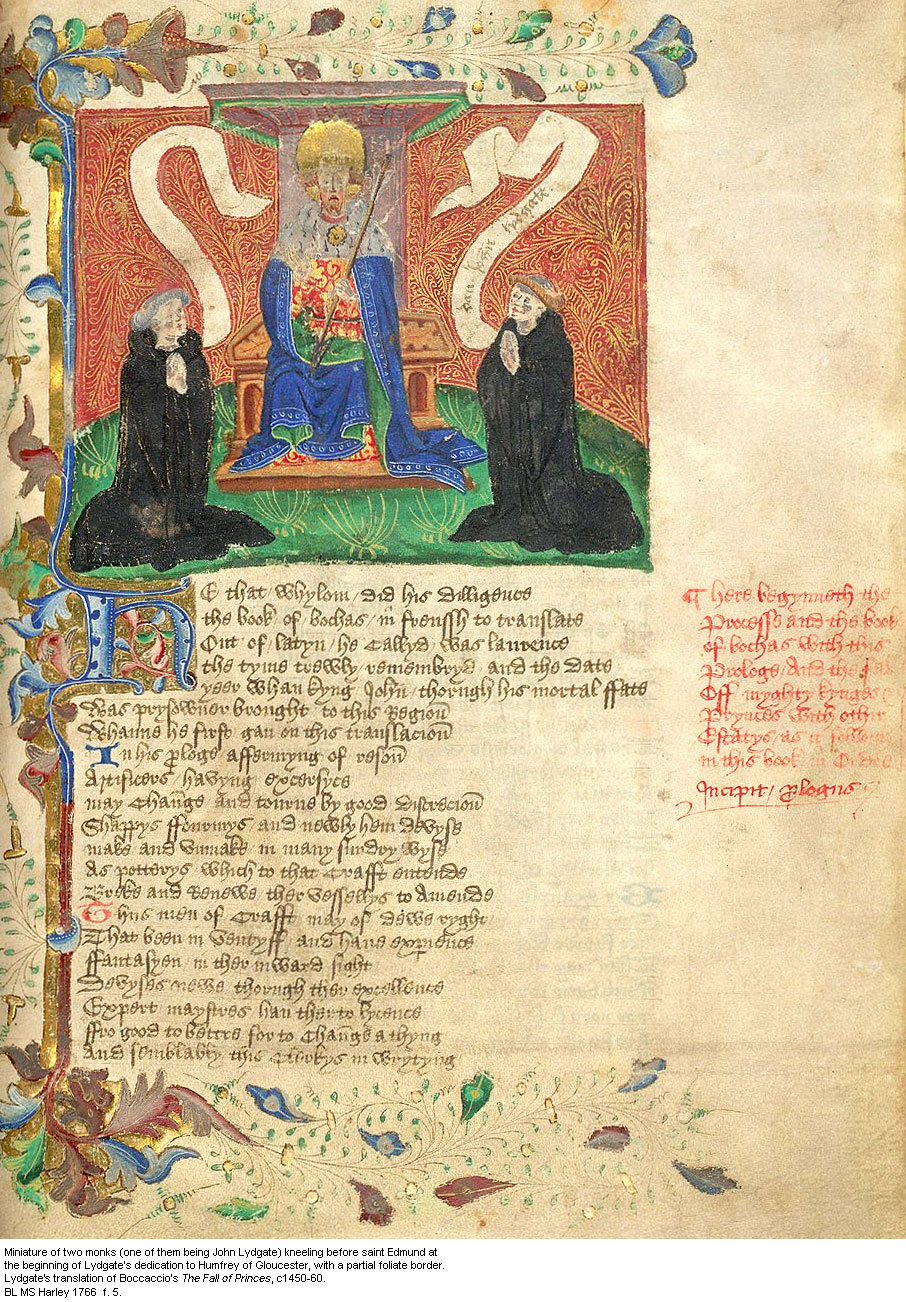 dan John lidgate
He that whylom / did his dilligence
the book of bochas / in frenssh to translate
Out of latyn / he Callyd was laurence
the tyme trewly remembryd and the date
yeer whan kyng John / thorugh his mortal ffate
Was prysowner brought to this Region
Whanne he first gan on this translacion
In his prloge affermyng of reson
Artificers / havyng excersyce
may Change and tourne by good discrecion
Shappys ffourmys / and newly hem devyse
make and vnmake in many sundry wyse
As potterys which to that Crafft entende
Breke and Renewe ther vessellys to Amende
Thus men of Crafft may of dewe ryght
That been inventyff / and have experience
ffantasyen / in ther inward sight
Devyses newe thorugh ther excellence
Expert maystres han therto lycence
ffro good to bettre for to Change a thyng
And semblably this Clerkys in wrytyng
There begynneth the
Processe and the book
of bochas with this
Prologe / And the
Off myghty kynges
Prynces with other
Estatys as it folowe
in this book in Ordre
Incipit / Prologus
Miniature of two monks (one of them being John Lydgate) kneeling before saint Edmund at
the beginning of Lydgate's dedication to Humfrey of Gloucester, with a partial foliate border.
Lydgate's translation of Boccaccio's The Fall of Princes, c1450-60.
BL MS Harley 1766 f. 5.